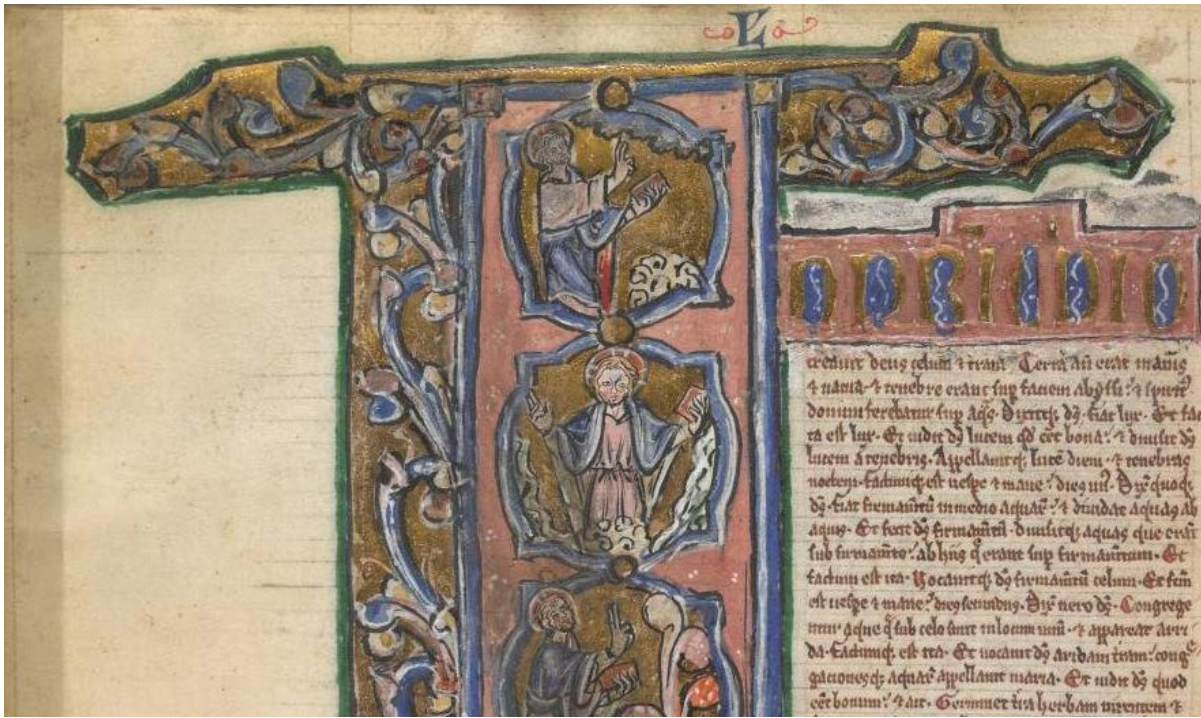 L
creauit deus celum ⁊ terrā. Terra aū erat inanis
⁊ uacua. ⁊ tenebre erant sup faciem abyssi. ⁊ spirit᷒
domini ferebatur sup aq̄s. Dixitq; ds̄. fiat lux. Et fa
cta est lux. Et uidit ds̄ lucem qd̄ eēt bona. ⁊ diuisit ds̄
lucem a tenebris. Appellauitq; lucē diem. ⁊ tenebras
noctem. factumq; est uespe ⁊ mane. dies un᷒. Dix̄ quoq;
ds̄. fiat firmam̄tū in medio aquaꝝ. ⁊ diuidat aquas ab
aquis. Et fecit ds̄ firmam̄tū. diuisitq; aquas que erāt
sub firmam̄to. ab hiis q̄ erant sup firmam̄tum. Et
factum est ita. Uocauitq; ds̄ firmam̄tū celum. Et fc̄m
est uespe ⁊ mane. dies secundus. Dix̄ uero ds̄. Congrege
ntur aque q̄ sub celo sunt in locum unū. ⁊ appareat ari
da. factumq; est ita. Et uocauit ds̄ aridam terram. cong̃
gationesq; aquaꝝ appellauit maria. Et uidit ds̄ quod
eēt bonum. ⁊ ait. Germinet t̄ra herbam uirentem ⁊